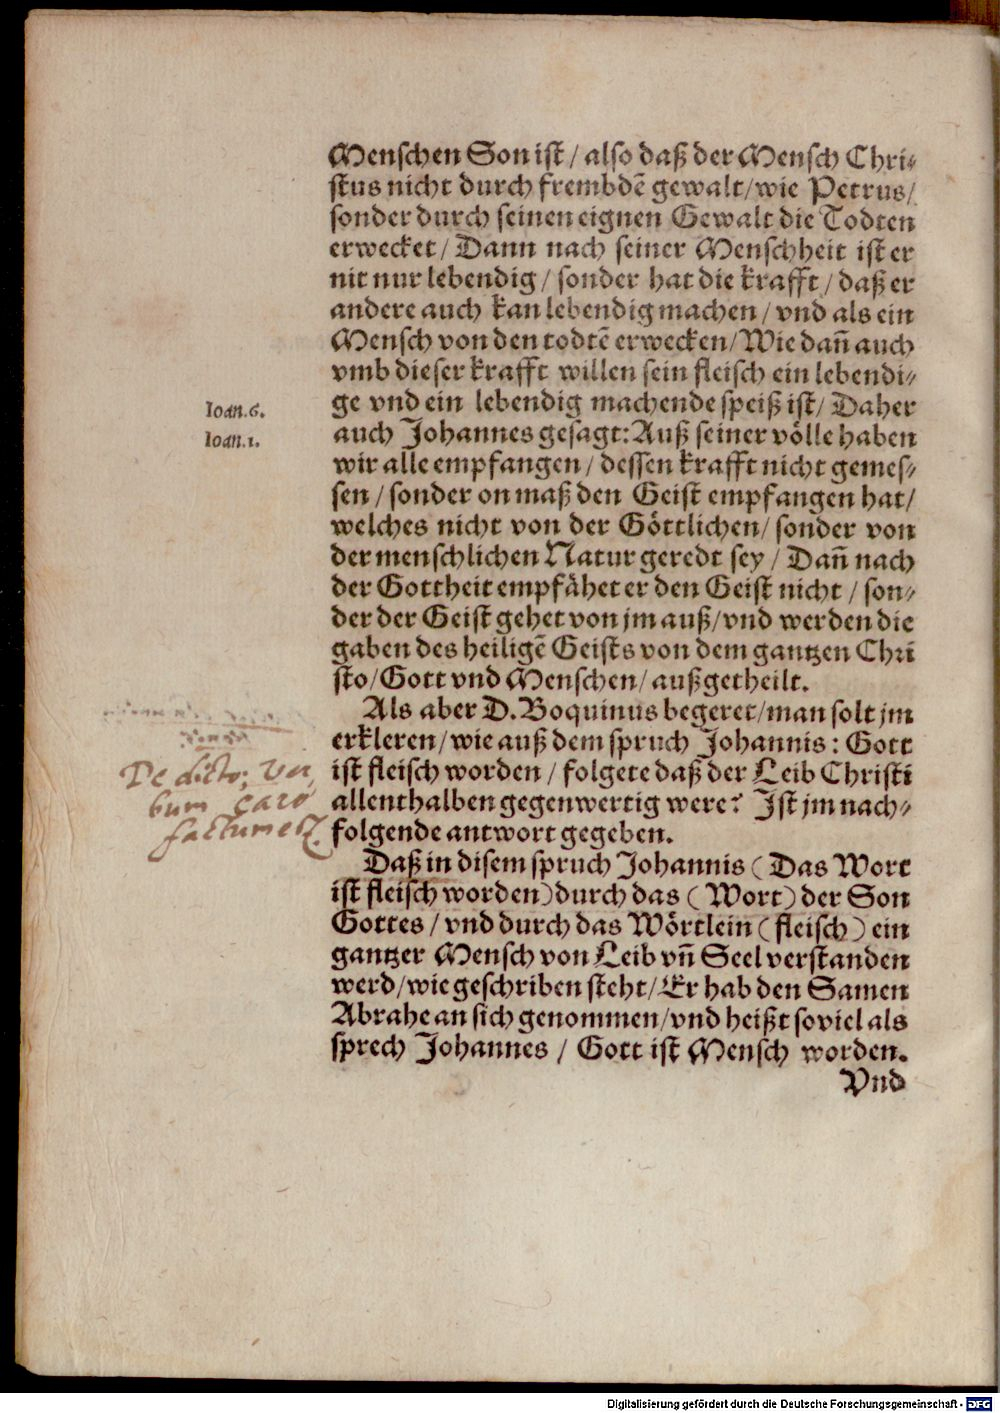 Menschen Son ist / also daß der Mensch Chri-
stus nicht durch frembdē gewalt / wie Petrus /
sonder durch seinen eignen Gewalt die Todten
erwecket / Dann nach seiner Menschheit ist er
nit nur lebendig / sonder hat die krafft / daß er
andere auch kan lebendig machen / vnd als ein
Mensch von den todtē erwecken / Wie dañ auch
vmb dieser krafft willen sein fleisch ein lebendi-
Ioan.6.
ge vnd ein lebendig machende speiß ist / Daher
Ioan.1.
auch Johannes gesagt: Auß seiner völle haben
wir alle empfangen / dessen krafft nicht gemes-
sen / sonder on maß den Geist empfangen hat /
welches nicht von der Göttlichen / sonder von
der menschlichen Natur geredt sey / Dañ nach
der Gottheit empfähet er den Geist nicht / son-
der der Geist gehet von jm auß / vnd werden die
gaben des heiligē Geists von dem gantzen Chri
sto / Gott vnd Menschen / außgetheilt.
Als aber D. Boquinus begeret / man solt jm
erkleren / wie auß dem spruch Johannis: Gott
ist fleisch worden / folgete daß der Leib Christi
allenthalben gegenwertig were? Ist jm nach-
folgende antwort gegeben.
De dicto: Ver
bum caro
factum est.
Daß in disem spruch Johannis (Das Wort
ist fleisch worden) durch das (Wort) der Son
Gottes / vnd durch das Wörtlein (fleisch) ein
gantzer Mensch von Leib vñ Seel verstanden
werd / wie geschriben steht / Er hab den Samen
Abrahe an sich genommen / vnd heißt soviel als
sprech Johannes / Gott ist Mensch worden.
Vnd
Digitalisierung gefördert durch die Deutsche Forschungsgemeinschaft - DFG